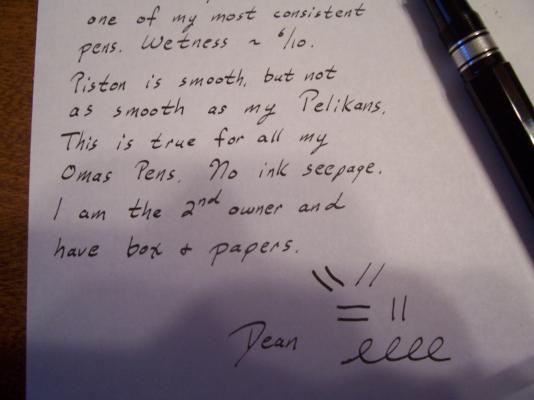 one of my most consistent
pens. Wetness ~ 6/10.
Piston is smooth, but not
as smooth as my Pelikans.
This is true for all my
Omas Pens. No ink seepage.
I am the 2nd owner and
have box & papers.
Dean